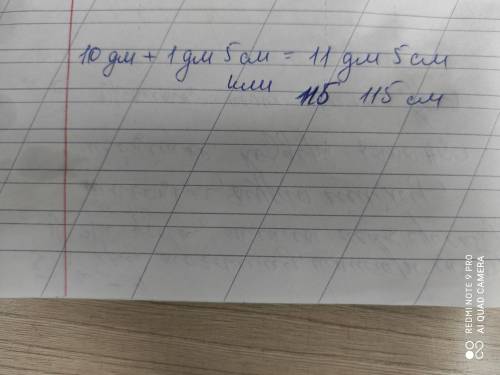 10 дм + 1 дм 5 см = 11 дм 5 см
или 115 115 см
REDMI NOTE 9 PRO
AI QUAD CAMERA